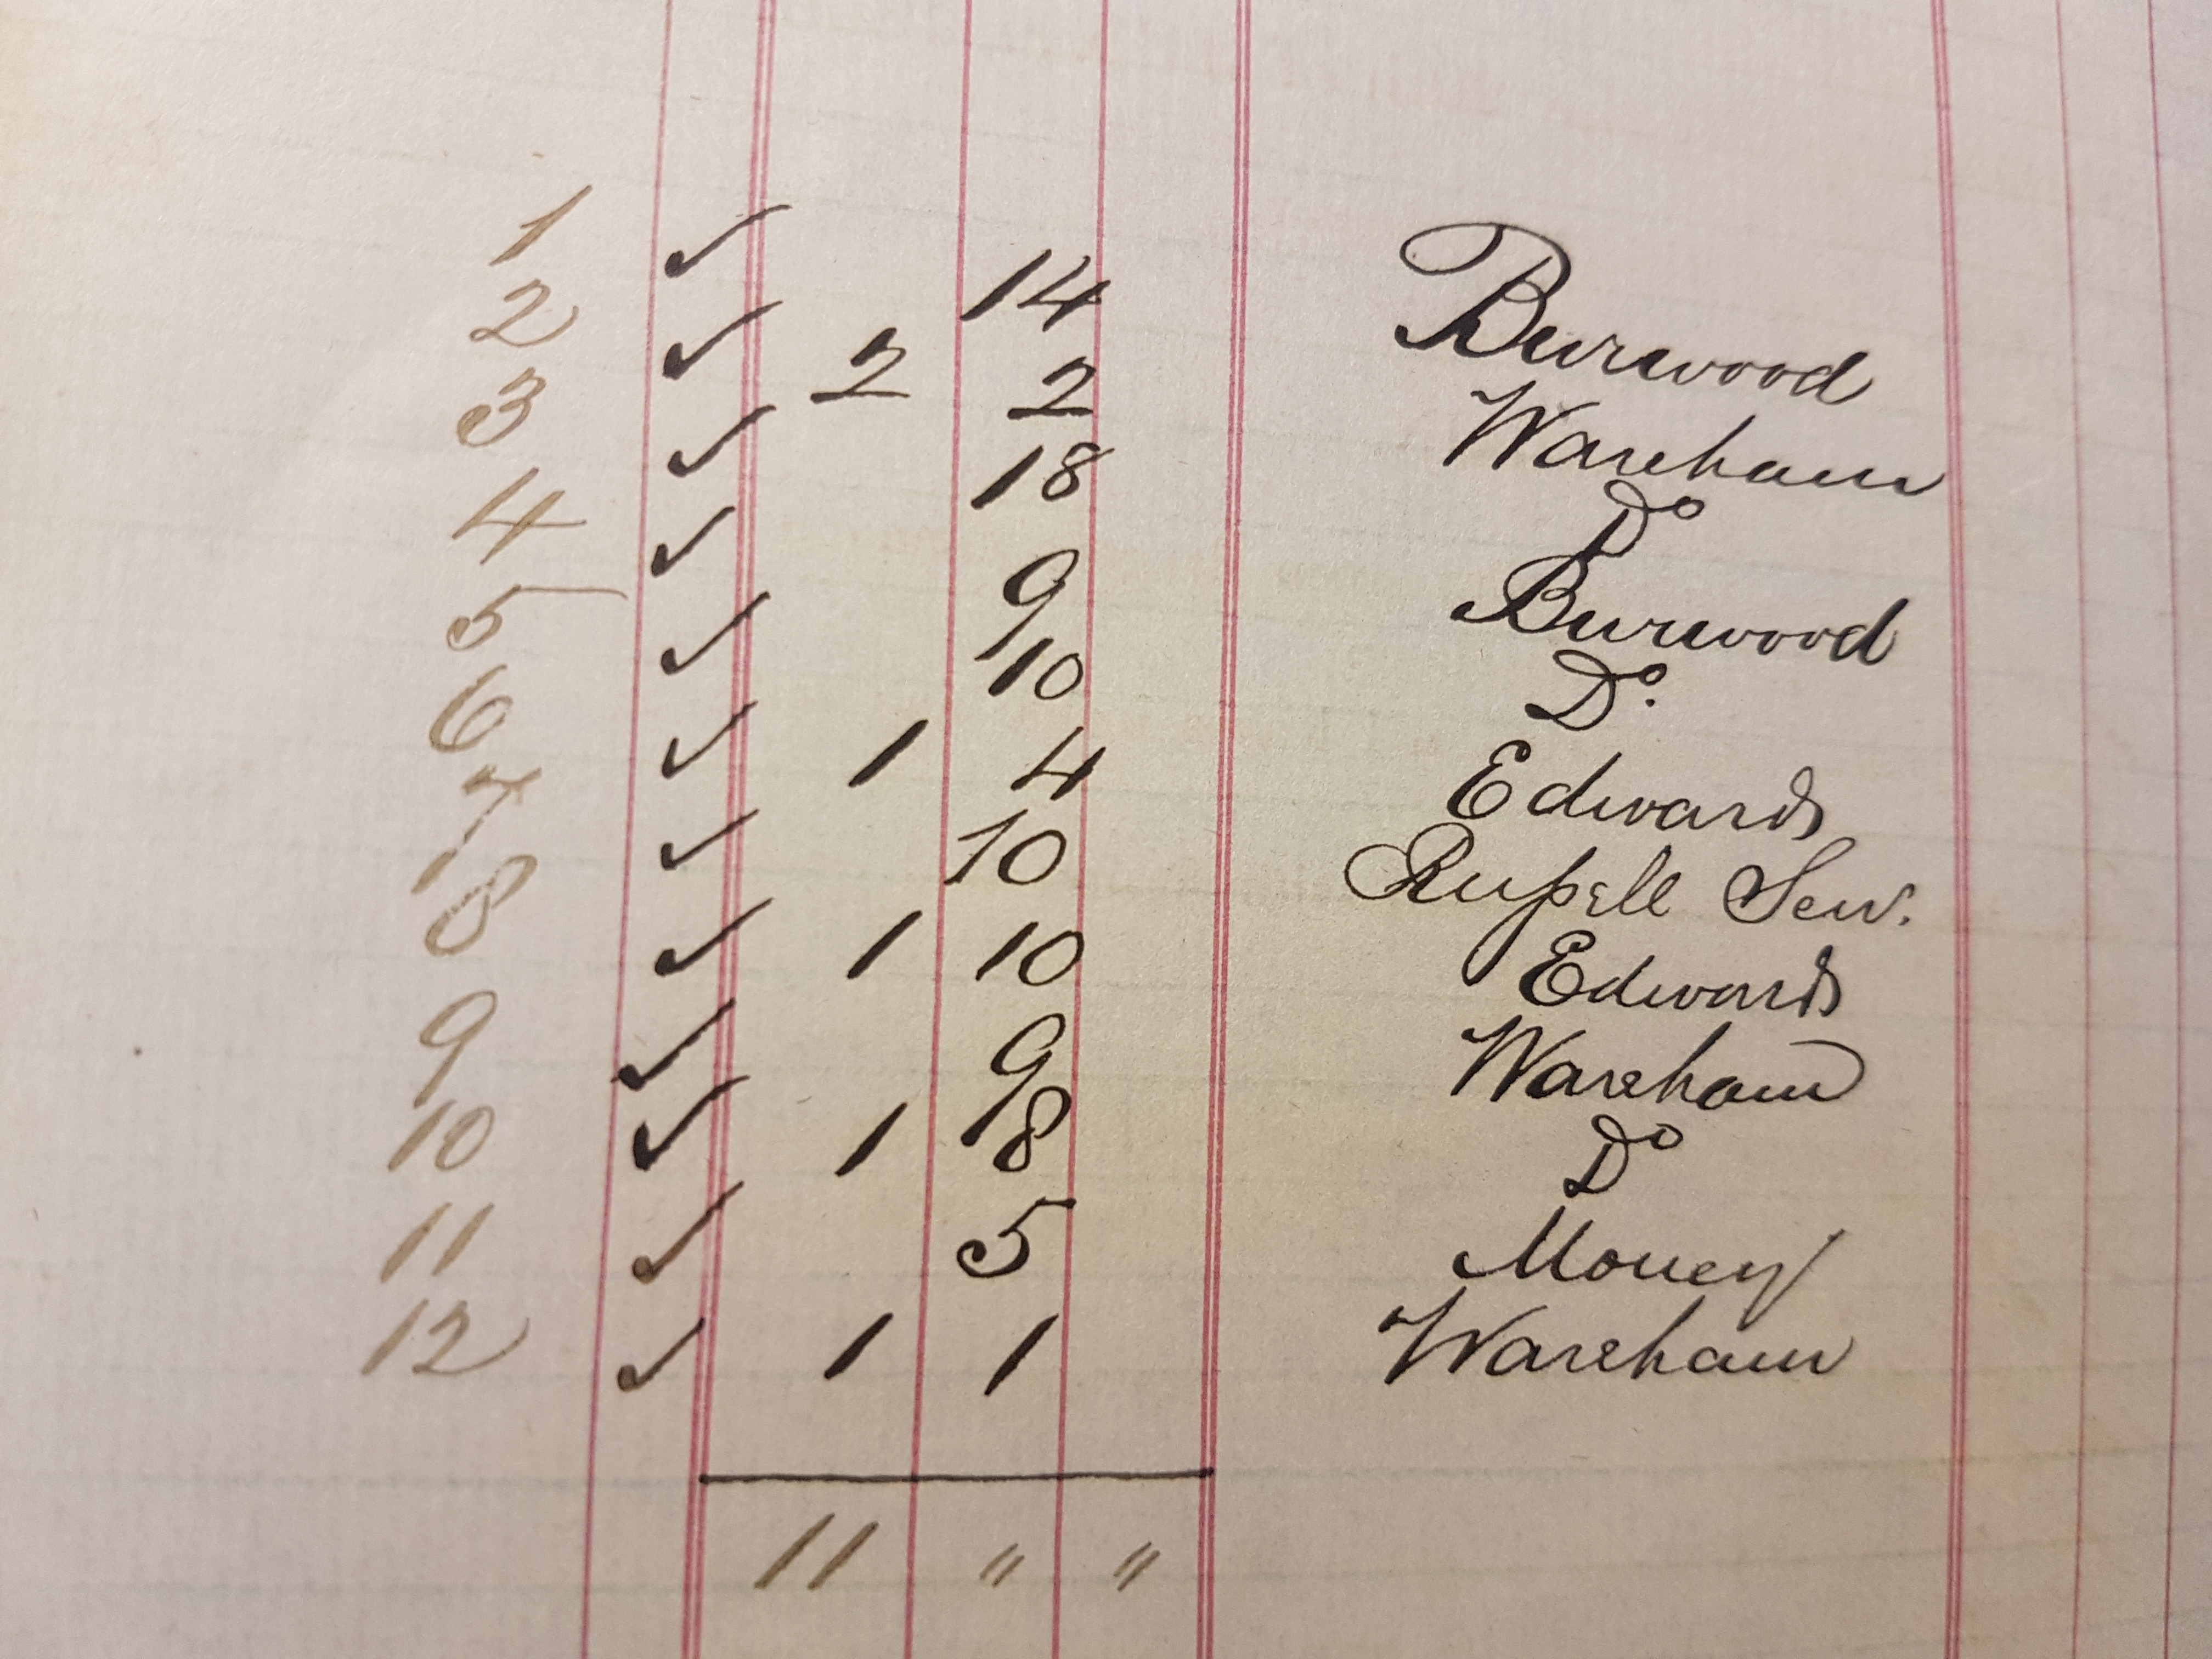 1 ✓ 14 Burwood
2 ✓ 2 2 Wareham
3 ✓ 18 Do
4 ✓ 9 Burwood
5 ✓ 10 Do.
6 ✓ 1 4 Edwards
7 ✓ 10 Ruſsell Senr.
8 ✓ 1 10 Edwards
9 ✓ 9 Wareham
10 ✓ 1 8 Do
11 ✓ 5 Money
12 ✓ 1 1 Wareham
11 " "